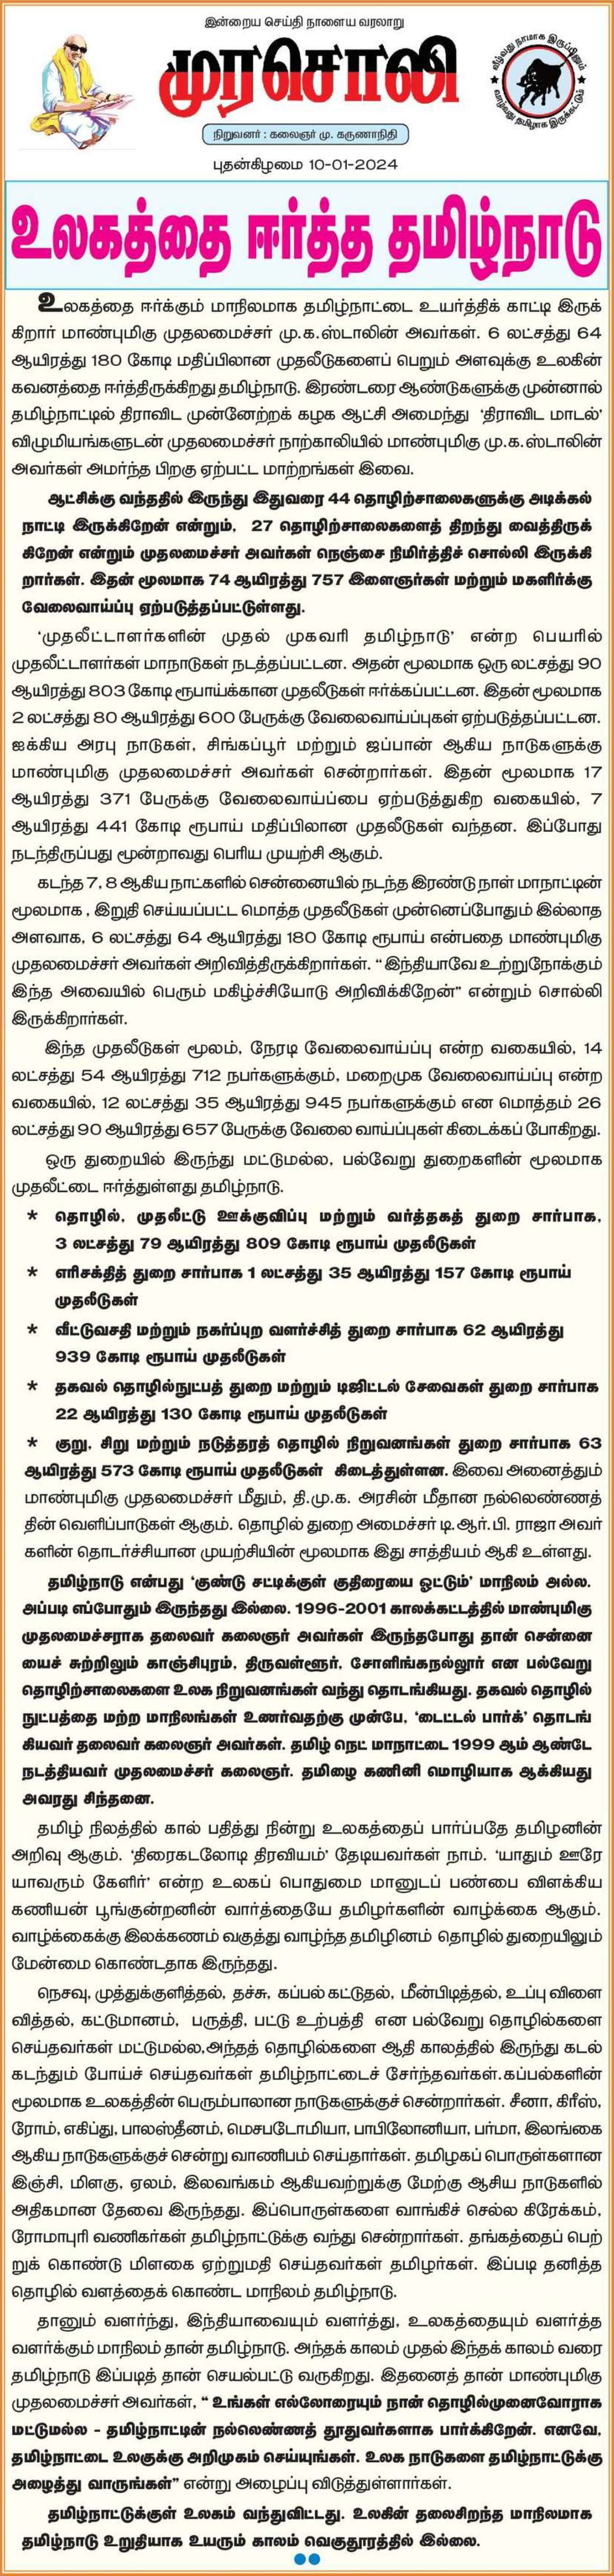 இன்றைய செய்தி நாளைய வரலாறு
முரசொலி
வீழ்வது நாமாக இருப்பினும்
வாழ்வது தமிழாக இருக்கட்டும்
நிறுவனர் : கலைஞர் மு. கருணாநிதி
புதன்கிழமை 10-01-2024
உலகத்தை ஈர்த்த தமிழ்நாடு
உலகத்தை ஈர்க்கும் மாநிலமாக தமிழ்நாட்டை உயர்த்திக் காட்டி இருக்
கிறார் மாண்புமிகு முதலமைச்சர் மு.க.ஸ்டாலின் அவர்கள். 6 லட்சத்து 64
ஆயிரத்து 180 கோடி மதிப்பிலான முதலீடுகளைப் பெறும் அளவுக்கு உலகின்
கவனத்தை ஈர்த்திருக்கிறது தமிழ்நாடு. இரண்டரை ஆண்டுகளுக்கு முன்னால்
தமிழ்நாட்டில் திராவிட முன்னேற்றக் கழக ஆட்சி அமைந்து 'திராவிட மாடல்'
விழுமியங்களுடன் முதலமைச்சர் நாற்காலியில் மாண்புமிகு மு.க.ஸ்டாலின்
அவர்கள் அமர்ந்த பிறகு ஏற்பட்ட மாற்றங்கள் இவை.
ஆட்சிக்கு வந்ததில் இருந்து இதுவரை 44 தொழிற்சாலைகளுக்கு அடிக்கல்
நாட்டி இருக்கிறேன் என்றும், 27 தொழிற்சாலைகளைத் திறந்து வைத்திருக்
கிறேன் என்றும் முதலமைச்சர் அவர்கள் நெஞ்சை நிமிர்த்திச் சொல்லி இருக்கி
றார்கள். இதன் மூலமாக 74 ஆயிரத்து 757 இளைஞர்கள் மற்றும் மகளிர்க்கு
வேலைவாய்ப்பு ஏற்படுத்தப்பட்டுள்ளது.
'முதலீட்டாளர்களின் முதல் முகவரி தமிழ்நாடு' என்ற பெயரில்
முதலீட்டாளர்கள் மாநாடுகள் நடத்தப்பட்டன. அதன் மூலமாக ஒரு லட்சத்து 90
ஆயிரத்து 803 கோடி ரூபாய்க்கான முதலீடுகள் ஈர்க்கப்பட்டன. இதன் மூலமாக
2 லட்சத்து 80 ஆயிரத்து 600 பேருக்கு வேலைவாய்ப்புகள் ஏற்படுத்தப்பட்டன.
ஐக்கிய அரபு நாடுகள், சிங்கப்பூர் மற்றும் ஜப்பான் ஆகிய நாடுகளுக்கு
மாண்புமிகு முதலமைச்சர் அவர்கள் சென்றார்கள். இதன் மூலமாக 17
ஆயிரத்து 371 பேருக்கு வேலைவாய்ப்பை ஏற்படுத்துகிற வகையில், 7
ஆயிரத்து 441 கோடி ரூபாய் மதிப்பிலான முதலீடுகள் வந்தன. இப்போது
நடந்திருப்பது மூன்றாவது பெரிய முயற்சி ஆகும்.
கடந்த 7, 8 ஆகிய நாட்களில் சென்னையில் நடந்த இரண்டு நாள் மாநாட்டின்
மூலமாக , இறுதி செய்யப்பட்ட மொத்த முதலீடுகள் முன்னெப்போதும் இல்லாத
அளவாக, 6 லட்சத்து 64 ஆயிரத்து 180 கோடி ரூபாய் என்பதை மாண்புமிகு
முதலமைச்சர் அவர்கள் அறிவித்திருக்கிறார்கள். "இந்தியாவே உற்றுநோக்கும்
இந்த அவையில் பெரும் மகிழ்ச்சியோடு அறிவிக்கிறேன்" என்றும் சொல்லி
இருக்கிறார்கள்.
இந்த முதலீடுகள் மூலம், நேரடி வேலைவாய்ப்பு என்ற வகையில், 14
லட்சத்து 54 ஆயிரத்து 712 நபர்களுக்கும், மறைமுக வேலைவாய்ப்பு என்ற
வகையில், 12 லட்சத்து 35 ஆயிரத்து 945 நபர்களுக்கும் என மொத்தம் 26
லட்சத்து 90 ஆயிரத்து 657 பேருக்கு வேலை வாய்ப்புகள் கிடைக்கப் போகிறது.
ஒரு துறையில் இருந்து மட்டுமல்ல, பல்வேறு துறைகளின் மூலமாக
முதலீட்டை ஈர்த்துள்ளது தமிழ்நாடு.
* தொழில், முதலீட்டு ஊக்குவிப்பு மற்றும் வர்த்தகத் துறை சார்பாக,
3 லட்சத்து 79 ஆயிரத்து 809 கோடி ரூபாய் முதலீடுகள்
* எரிசக்தித் துறை சார்பாக 1 லட்சத்து 35 ஆயிரத்து 157 கோடி ரூபாய்
முதலீடுகள்
* வீட்டுவசதி மற்றும் நகர்ப்புற வளர்ச்சித் துறை சார்பாக 62 ஆயிரத்து
939 கோடி ரூபாய் முதலீடுகள்
* தகவல் தொழில்நுட்பத் துறை மற்றும் டிஜிட்டல் சேவைகள் துறை சார்பாக
22 ஆயிரத்து 130 கோடி ரூபாய் முதலீடுகள்
* குறு, சிறு மற்றும் நடுத்தரத் தொழில் நிறுவனங்கள் துறை சார்பாக 63
ஆயிரத்து 573 கோடி ரூபாய் முதலீடுகள் கிடைத்துள்ளன. இவை அனைத்தும்
மாண்புமிகு முதலமைச்சர் மீதும், தி.மு.க. அரசின் மீதான நல்லெண்ணத்
தின் வெளிப்பாடுகள் ஆகும். தொழில் துறை அமைச்சர் டி.ஆர்.பி. ராஜா அவர்
களின் தொடர்ச்சியான முயற்சியின் மூலமாக இது சாத்தியம் ஆகி உள்ளது.
தமிழ்நாடு என்பது 'குண்டு சட்டிக்குள் குதிரையை ஓட்டும்' மாநிலம் அல்ல.
அப்படி எப்போதும் இருந்தது இல்லை. 1996-2001 காலக்கட்டத்தில் மாண்புமிகு
முதலமைச்சராக தலைவர் கலைஞர் அவர்கள் இருந்தபோது தான் சென்னை
யைச் சுற்றிலும் காஞ்சிபுரம், திருவள்ளூர், சோளிங்கநல்லூர் என பல்வேறு
தொழிற்சாலைகளை உலக நிறுவனங்கள் வந்து தொடங்கியது. தகவல் தொழில்
நுட்பத்தை மற்ற மாநிலங்கள் உணர்வதற்கு முன்பே, 'டைட்டல் பார்க்' தொடங்
கியவர் தலைவர் கலைஞர் அவர்கள். தமிழ் நெட் மாநாட்டை 1999 ஆம் ஆண்டே
நடத்தியவர் முதலமைச்சர் கலைஞர். தமிழை கணினி மொழியாக ஆக்கியது
அவரது சிந்தனை.
தமிழ் நிலத்தில் கால் பதித்து நின்று உலகத்தைப் பார்ப்பதே தமிழனின்
அறிவு ஆகும். 'திரைகடலோடி திரவியம்' தேடியவர்கள் நாம். 'யாதும் ஊரே
யாவரும் கேளிர்' என்ற உலகப் பொதுமை மானுடப் பண்பை விளக்கிய
கணியன் பூங்குன்றனின் வார்த்தையே தமிழர்களின் வாழ்க்கை ஆகும்.
வாழ்க்கைக்கு இலக்கணம் வகுத்து வாழ்ந்த தமிழினம் தொழில் துறையிலும்
மேன்மை கொண்டதாக இருந்தது.
நெசவு, முத்துக்குளித்தல், தச்சு, கப்பல் கட்டுதல், மீன்பிடித்தல், உப்பு விளை
வித்தல், கட்டுமானம், பருத்தி, பட்டு உற்பத்தி என பல்வேறு தொழில்களை
செய்தவர்கள் மட்டுமல்ல,அந்தத் தொழில்களை ஆதி காலத்தில் இருந்து கடல்
கடந்தும் போய்ச் செய்தவர்கள் தமிழ்நாட்டைச் சேர்ந்தவர்கள்.கப்பல்களின்
மூலமாக உலகத்தின் பெரும்பாலான நாடுகளுக்குச் சென்றார்கள். சீனா, கிரீஸ்,
ரோம், எகிப்து, பாலஸ்தீனம், மெசபடோமியா, பாபிலோனியா, பர்மா, இலங்கை
ஆகிய நாடுகளுக்குச் சென்று வாணிபம் செய்தார்கள். தமிழகப் பொருள்களான
இஞ்சி, மிளகு, ஏலம், இலவங்கம் ஆகியவற்றுக்கு மேற்கு ஆசிய நாடுகளில்
அதிகமான தேவை இருந்தது. இப்பொருள்களை வாங்கிச் செல்ல கிரேக்கம்,
ரோமாபுரி வணிகர்கள் தமிழ்நாட்டுக்கு வந்து சென்றார்கள். தங்கத்தைப் பெற்
றுக் கொண்டு மிளகை ஏற்றுமதி செய்தவர்கள் தமிழர்கள். இப்படி தனித்த
தொழில் வளத்தைக் கொண்ட மாநிலம் தமிழ்நாடு.
தானும் வளர்ந்து, இந்தியாவையும் வளர்த்து, உலகத்தையும் வளர்த்த
வளர்க்கும் மாநிலம் தான் தமிழ்நாடு. அந்தக் காலம் முதல் இந்தக் காலம் வரை
தமிழ்நாடு இப்படித் தான் செயல்பட்டு வருகிறது. இதனைத் தான் மாண்புமிகு
முதலமைச்சர் அவர்கள், " உங்கள் எல்லோரையும் நான் தொழில்முனைவோராக
மட்டுமல்ல - தமிழ்நாட்டின் நல்லெண்ணத் தூதுவர்களாக பார்க்கிறேன். எனவே,
தமிழ்நாட்டை உலகுக்கு அறிமுகம் செய்யுங்கள். உலக நாடுகளை தமிழ்நாட்டுக்கு
அழைத்து வாருங்கள்" என்று அழைப்பு விடுத்துள்ளார்கள்.
தமிழ்நாட்டுக்குள் உலகம் வந்துவிட்டது. உலகின் தலைசிறந்த மாநிலமாக
தமிழ்நாடு உறுதியாக உயரும் காலம் வெகுதூரத்தில் இல்லை.